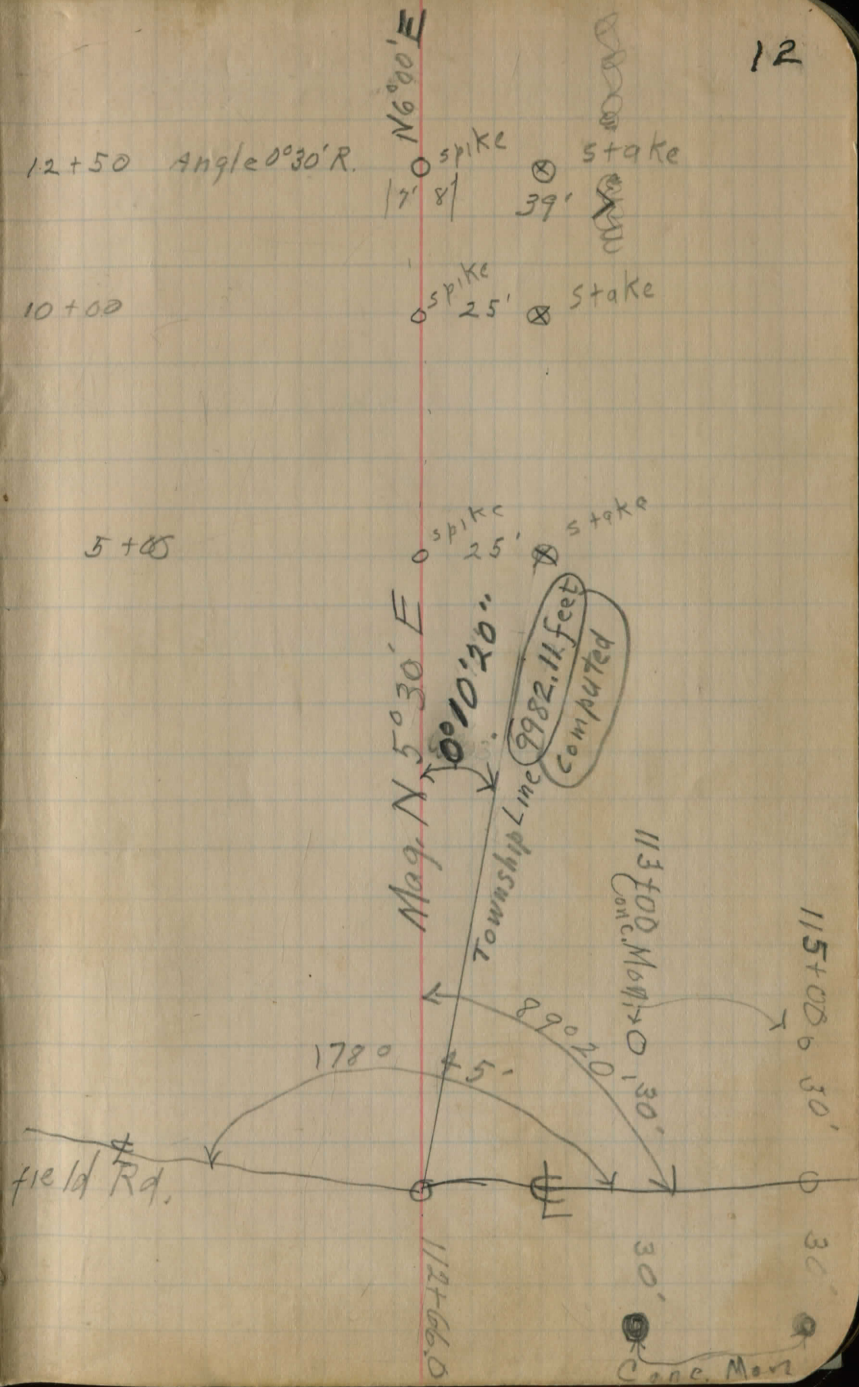 12
N6°00'E
12+50 Angle 0°30'R. spike stake
7' 8' 39'
10+00 spike 25' stake
5+00 spike 25' stake
Mag. N 5°30' E
0°10'20"
Township Line 9982.11 feet
computed
113+00
Conc. Mon. 30'
115+00 30'
89°20'
178°
+5'
field Rd.
112+66.0
30'
30'
Conc. Mon